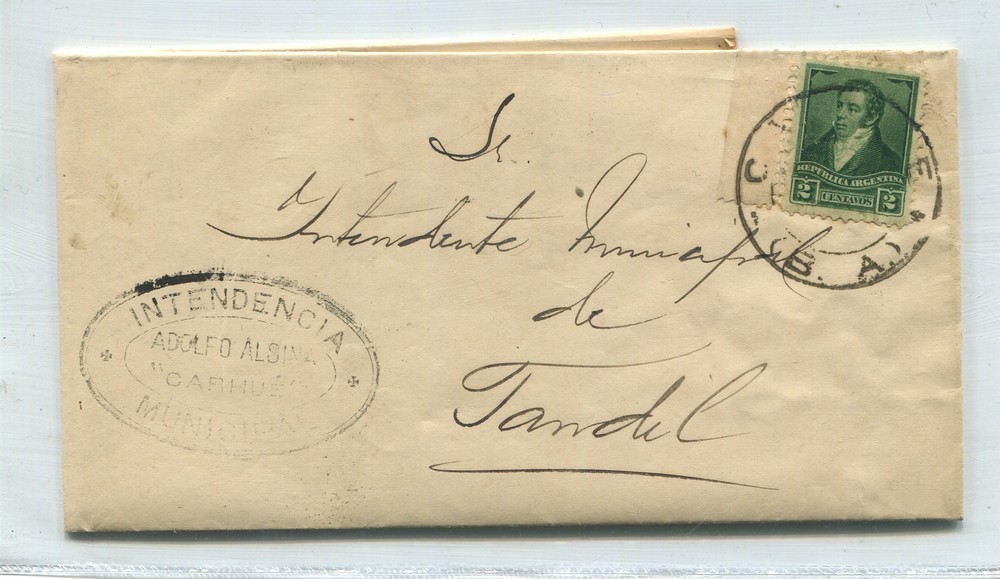 Sr.
Intendente Municipal
de
Tandil
REPUBLICA ARGENTINA
2 CENTAVOS 2
(B. A.)
INTENDENCIA
ADOLFO ALSINA
"CARHUE"